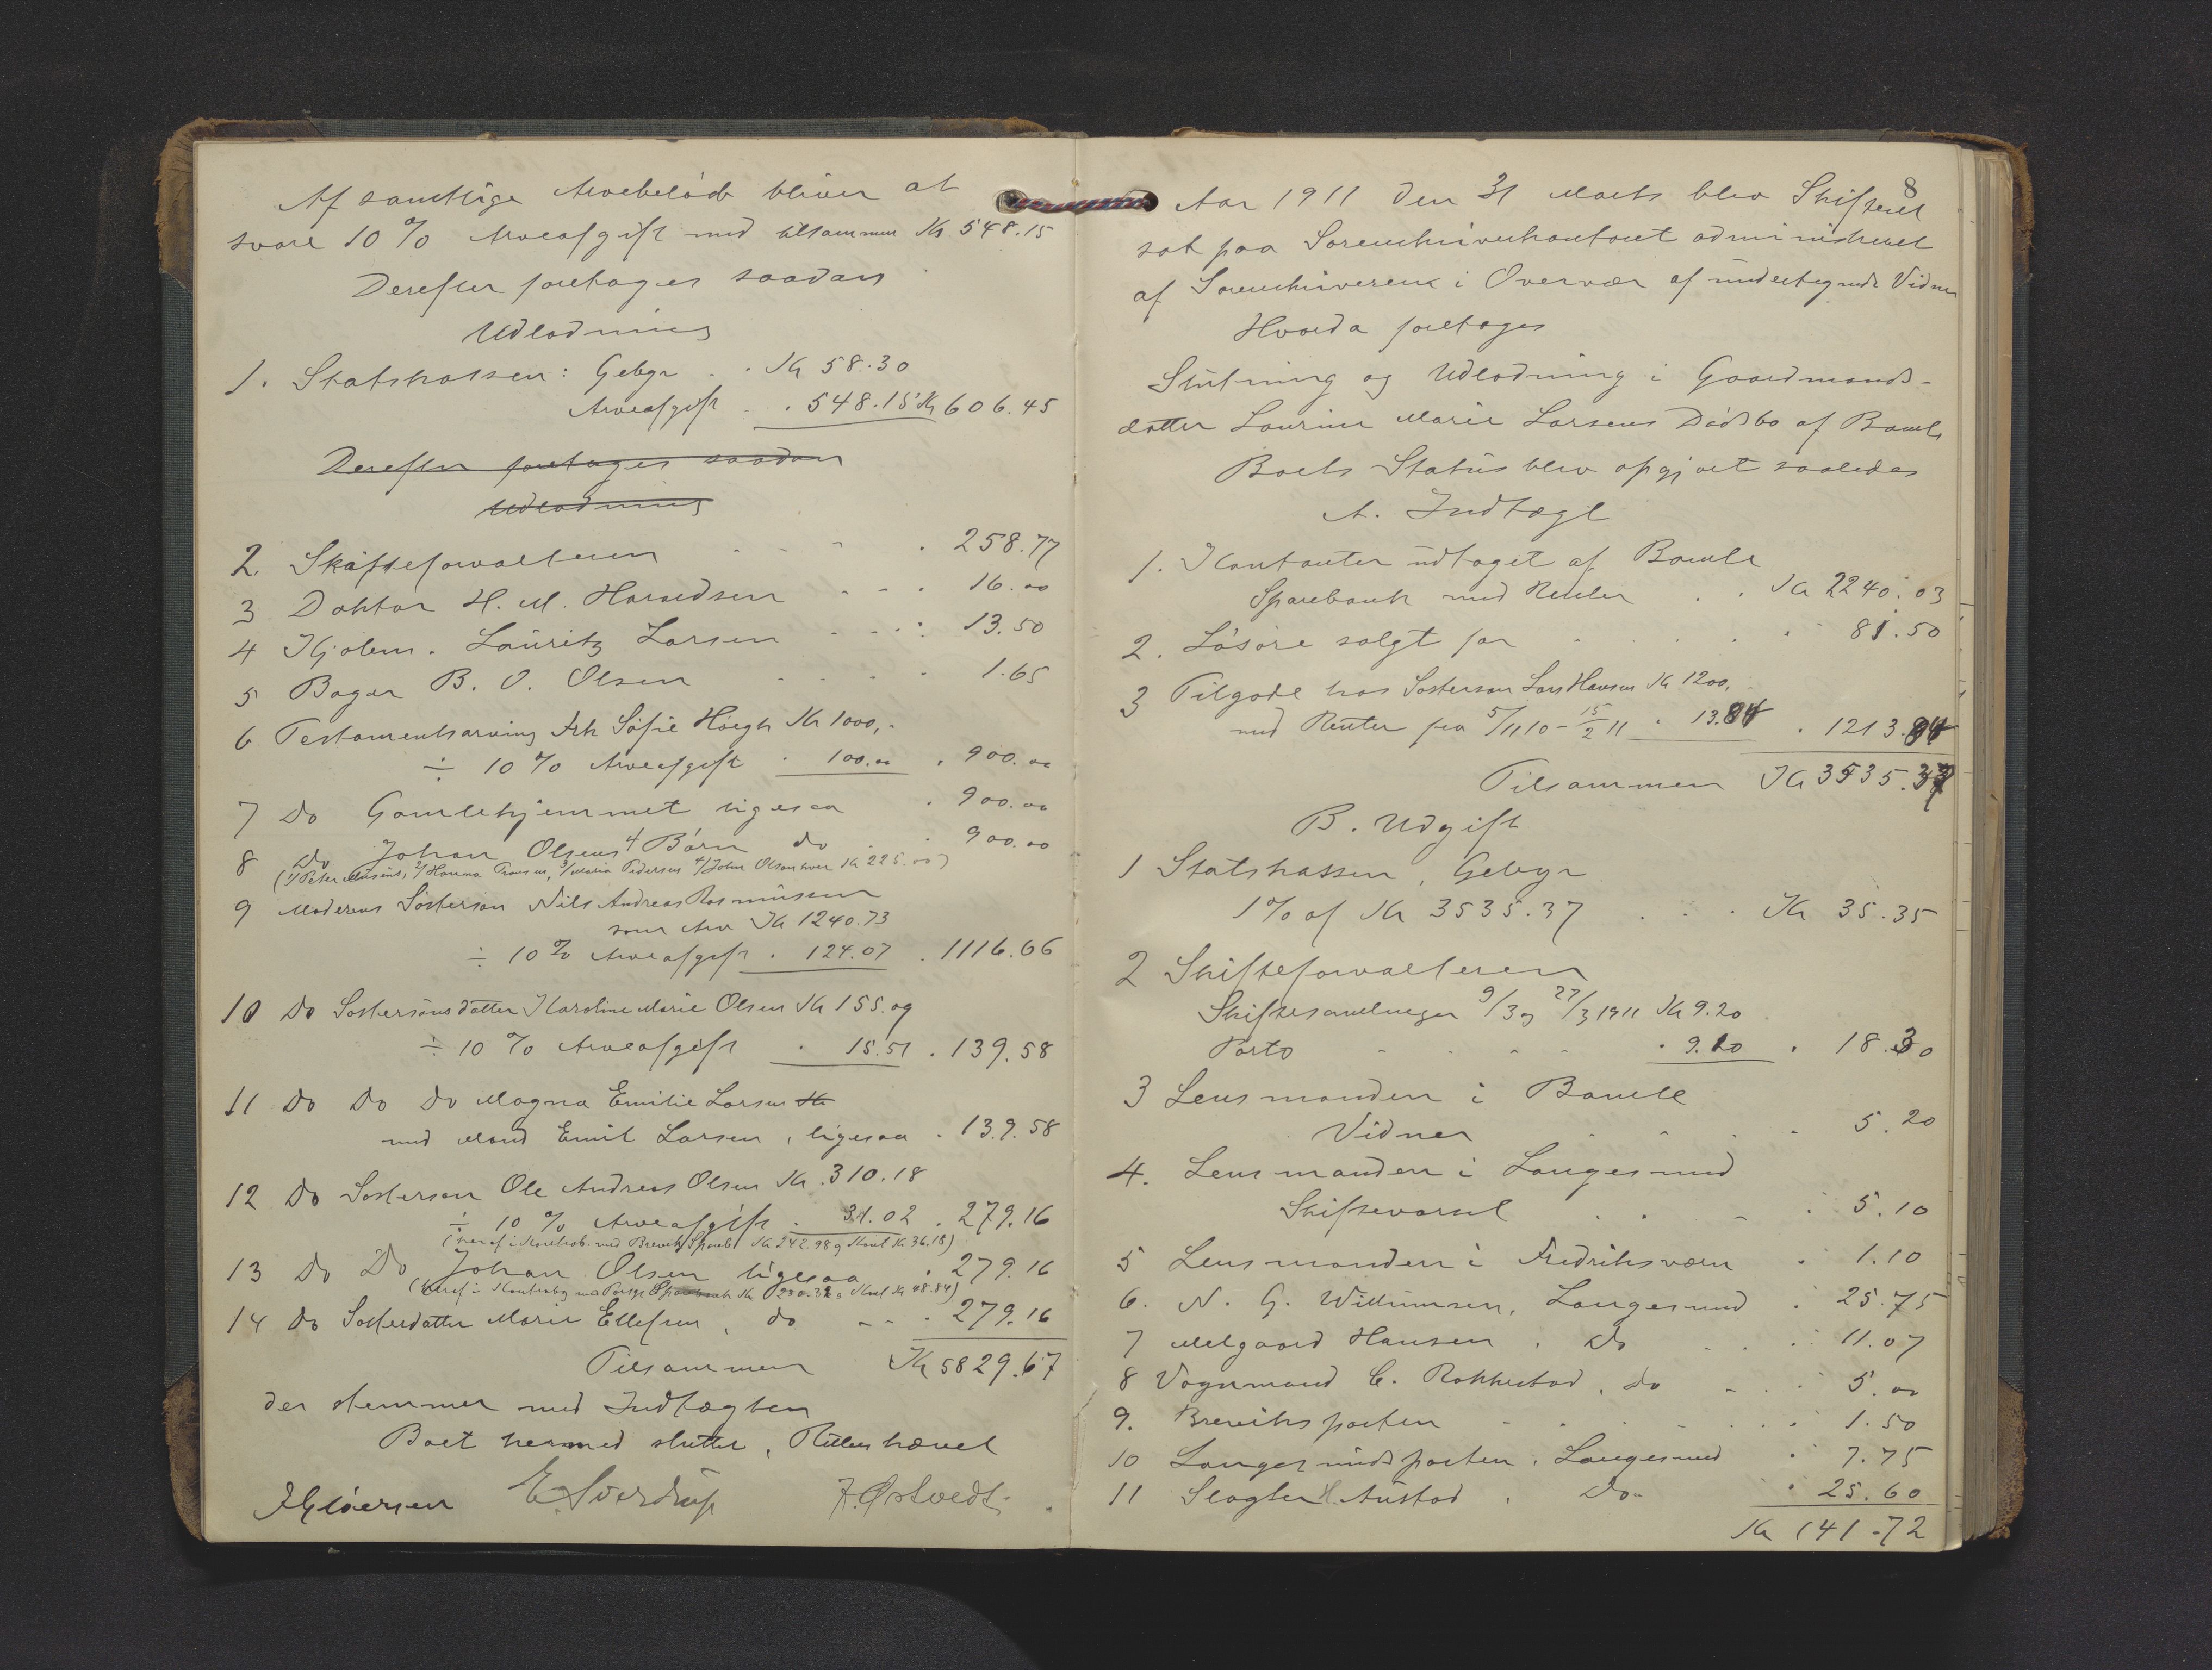 Af samtlige Arvebeløb bliver at
svare 10 % Arveafgift med tilsammen Kr 548.15
Derefter foretages saadan
Udlodning
1. Statskassen: Gebyr . . Kr 58.30
Arveafgift . . 548.15 Kr 606.45
Derefter foretages saadan
Udlodning
2. Skifteforvalteren . . . . 258.77
3 Doktor H. M. Horsedsen . . . 16.00
4 Kjøbm. Lauritz Larsen . . . 13.50
5 Bager B. O. Olsen . . . . 1.65
6 Testamentsarving Frk Sofie Høegh Kr 1000,-
÷ 10 % Arveafgift . 100.00 . 900.00
7 Do Gamlehjemmet ligesaa . 900.00
8 Do Johan Olsens 4 Børn do . . 900.00
(1/ Peter 2/ Hanna 3/ Maria Pedersen 4/ John Olsen hver Kr 225.00)
9 Moderens Søstersøn Nils Andreas Rasmussen
som Arv Kr 1240.73
÷ 10 % Arveafgift . 124.07 . 1116.66
10 Do Søstersønsdatter Karoline Marie Olsen Kr 155.09
÷ 10 % Arveafgift . 15.51 . 139.58
11 Do Do Do Magna Emilie Larsen Kr
med Mand Emil Larsen, ligesaa . 139.58
12 Do Søstersøn Ole Andreas Olsen Kr. 310.18
÷ 10 % Arveafgift . 31.02 . 279.16
(heraf i Kontrab. med Brevik Spareb. Kr 242.98 og Kont Kr 36.18)
13 Do Do Johan Olsen ligesaa . 279.16
(heraf i Kontrabog med Porsgr Sparebank Kr 230.32 og Kont Kr 48.84)
14 Do Søsterdatter Marie Ellefsen, do . . . 279.16
Tilsammen Kr 5829.67
der stemmer med Indtægten
Boet hermed sluttet, Retten hævet
J Gløersen E. Sverdrup J. Østvedt.
8
Aar 1911 den 31 Marts blev Skifteret
sat paa Sorenskriverkontoret administreret
af Sorenskriveren i Overvær af undertegnede Vidner
Hvorda foretages
Slutning og Udlodning i Gaardmands-
datter Laurine Marie Larsens Dødsbo af Bamle
Boets Status blev opgjort saaledes
A. Indtægt
1. Kontanter udtaget af Bamle
Sparebank med Renter . . Kr 2240.03
2. Løsøre solgt for . . . . . 81.50
3 Tilgode hos Søstersøn Lars Hansen Kr 1200,
med Renter fra 5/11 10 - 15/2 11 . 13.84 . 1213.84
Tilsammen Kr 3535.37
B. Udgift
1 Statskassen, Gebyr
1% af Kr 3535.37 . . . Kr 35.35
2 Skifteforvalteren
Skiftesamlinger 9/3 og 27/3 1911 Kr 9.20
Porto . . . . . 9.10 . 18.30
3 Lensmanden i Bamle
Vidner . . . . 5.20
4. Lensmanden i Langesund
Skiftevarsel . . . . 5.10
5 Lensmanden i Fredriksværn . 1.10
6. N. G. Willumsen, Langesund . 25.75
7 Melgaard Hansen, Do . . . 11.07
8 Vognmand C. Rakkestad, do . . . 5.00
9. Breviksposten . . . . . . 1.50
10 Langesundsposten, Langesund . 7.75
11 Slagter H. Austad, Do . 25.60
Kr 141.72